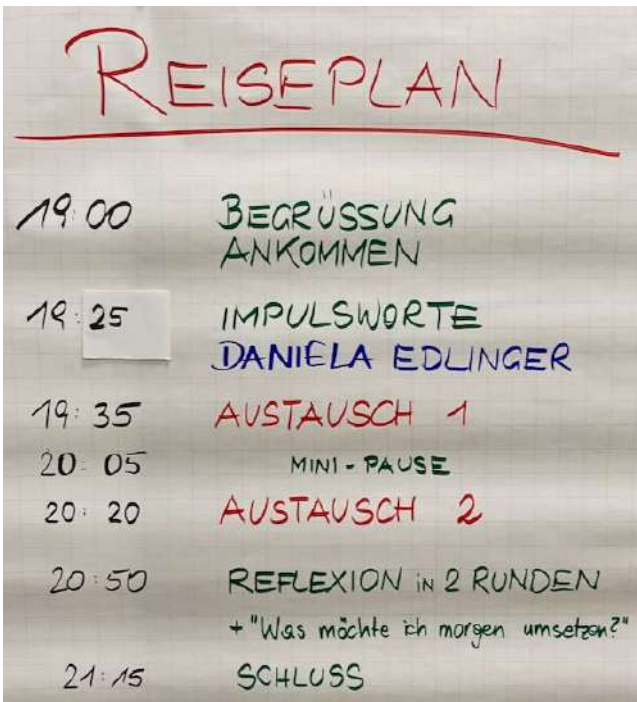 REISEPLAN
19:00 BEGRÜSSUNG
ANKOMMEN
19:25 IMPULSWORTE
DANIELA EDLINGER
19:35 AUSTAUSCH 1
20:05 MINI-PAUSE
20:20 AUSTAUSCH 2
20:50 REFLEXION IN 2 RUNDEN
+ "Was möchte ich morgen umsetzen?"
21:15 SCHLUSS